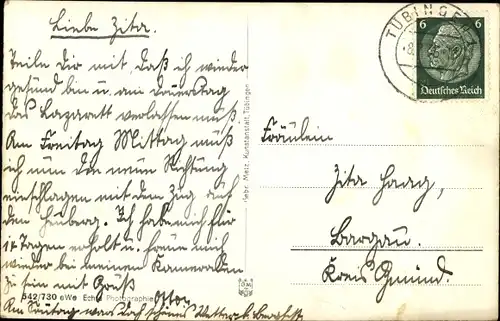 Liebe Zita.
Teile Dir mit, daß ich wieder
gesund bin u. am Donnerstag
das Lazarett verlassen muß.
Am Freitag Mittag muß
ich nun den neuen Richtung
einschlagen mit dem Zug auf
den Heuberg. Ich habe mich für
14 Tagen erholt u. freue mich
wieder bei meinen Kameraden
zu sein mit Gruß
Otto
Am Freitag war doch schönes
542/730 eWe Echte Photographie
Gebr. Metz, Kunstanstalt, Tübingen
TÜBINGEN
6 6
Deutsches Reich
Fräulein
Zita Haag,
Bargau.
Kreis Gmünd.